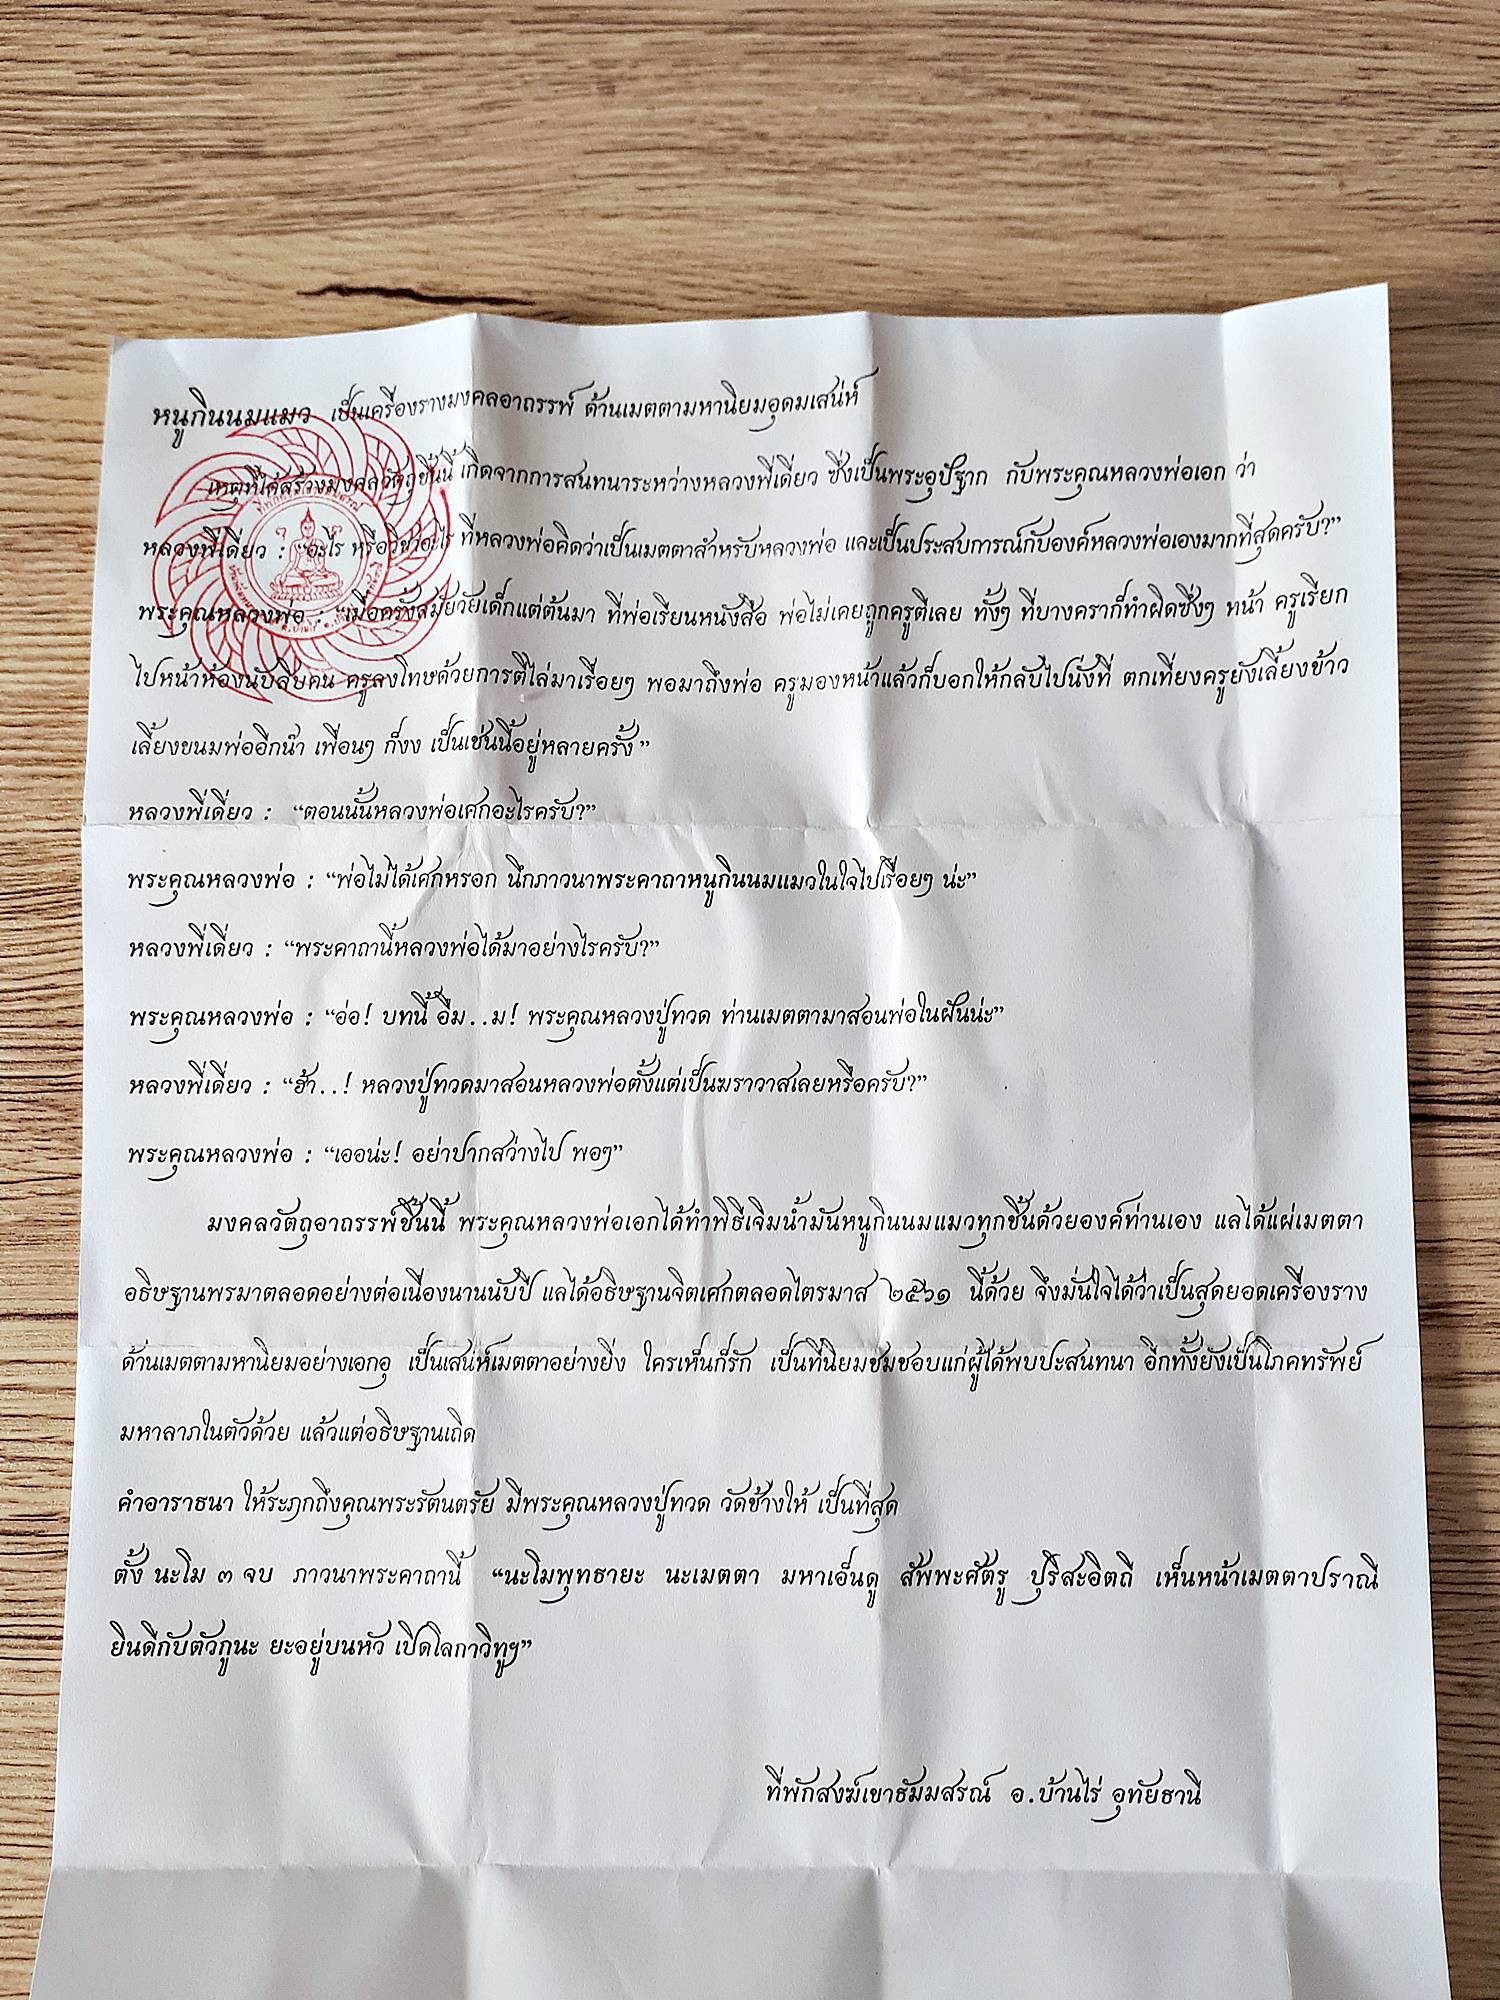 หนูกินนมแมว เป็นเครื่องรางมงคลอาถรรพ์ ด้านเมตตามหานิยมอุดมเสน่ห์
เหตุที่ได้สร้างมงคลวัตถุชิ้นนี้ เกิดจากการสนทนาระหว่างหลวงพี่เดี่ยว ซึ่งเป็นพระอุปัฐาก กับพระคุณหลวงพ่อเอก ว่า
หลวงพี่เดี่ยว : “อะไร หรือวิชาอะไร ที่หลวงพ่อคิดว่าเป็นเมตตาสำหรับหลวงพ่อ และเป็นประสบการณ์กับองค์หลวงพ่อเองมากที่สุดครับ?”
พระคุณหลวงพ่อ : “เมื่อครั้งสมัยวัยเด็กแต่ต้นมา ที่พ่อเรียนหนังสือ พ่อไม่เคยถูกครูตีเลย ทั้งๆ ที่บางคราก็ทำผิดซึ่งๆ หน้า ครูเรียก
ไปหน้าห้องนับสิบคน ครูลงโทษด้วยการตีไล่มาเรื่อยๆ พอมาถึงพ่อ ครูมองหน้าแล้วก็บอกให้กลับไปนั่งที่ ตกเที่ยงครูยังเลี้ยงข้าว
เลี้ยงขนมพ่ออีกน๊า เพื่อนๆ ก็งง เป็นเช่นนี้อยู่หลายครั้ง”
หลวงพี่เดี่ยว : “ตอนนั้นหลวงพ่อเศกอะไรครับ?”
พระคุณหลวงพ่อ : “พ่อไม่ได้เศกหรอก นึกภาวนาพระคาถาหนูกินนมแมวในใจไปเรื่อยๆ น่ะ”
หลวงพี่เดี่ยว : “พระคาถานี้หลวงพ่อได้มาอย่างไรครับ?”
พระคุณหลวงพ่อ : “อ่อ! บทนี้ อืม..ม! พระคุณหลวงปู่ทวด ท่านเมตตามาสอนพ่อในฝันน่ะ”
หลวงพี่เดี่ยว : “ฮ้า..! หลวงปู่ทวดมาสอนหลวงพ่อตั้งแต่เป็นฆราวาสเลยหรือครับ?”
พระคุณหลวงพ่อ : “เออน่ะ! อย่าปากสว่างไป พอๆ”
มงคลวัตถุอาถรรพ์ชิ้นนี้ พระคุณหลวงพ่อเอกได้ทำพิธีเจิมน้ำมันหนูกินนมแมวทุกชิ้นด้วยองค์ท่านเอง แลได้แผ่เมตตา
อธิษฐานพรมาตลอดอย่างต่อเนื่องนานนับปี แลได้อธิษฐานจิตเศกตลอดไตรมาส ๒๕๖๑ นี้ด้วย จึงมั่นใจได้ว่าเป็นสุดยอดเครื่องราง
ด้านเมตตามหานิยมอย่างเอกอุ เป็นเสน่ห์เมตตาอย่างยิ่ง ใครเห็นก็รัก เป็นที่นิยมชมชอบแก่ผู้ได้พบปะสนทนา อีกทั้งยังเป็นโภคทรัพย์
มหาลาภในตัวด้วย แล้วแต่อธิษฐานเถิด
คำอาราธนา ให้ระฦกถึงคุณพระรัตนตรัย มีพระคุณหลวงปู่ทวด วัดช้างให้ เป็นที่สุด
ตั้ง นะโม ๓ จบ ภาวนาพระคาถานี้ “นะโมพุทธายะ นะเมตตา มหาเอ็นดู สัพพะศัตรู ปุริสะอิตถี เห็นหน้าเมตตาปราณี
ยินดีกับตัวกูนะ ยะอยู่บนหัว เปิดโลกาวิทูฯ”
ที่พักสงฆ์เขาธัมมสรณ์ อ.บ้านไร่ อุทัยธานี